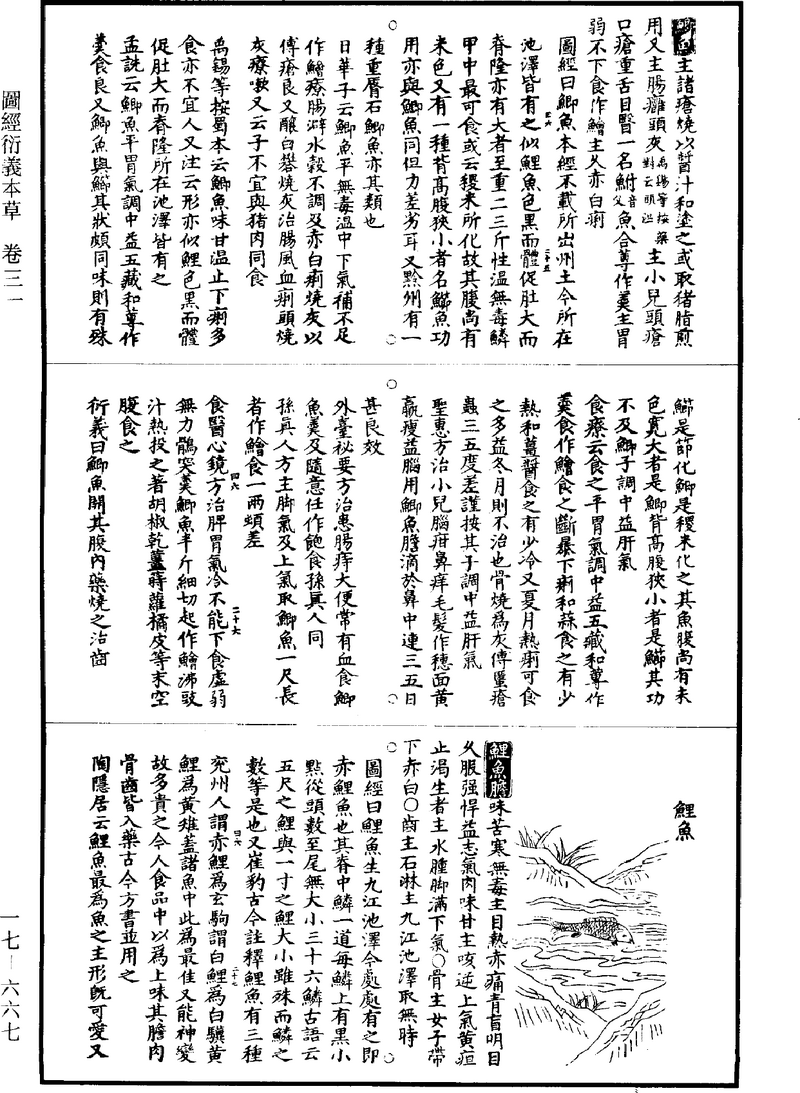 圖經衍義本草　卷三一
一七—六六七
鯽魚主諸瘡燒以醬汁和塗之或取猪脂煎
用又主腸癰頭灰禹錫等按藥對云頭溫主小兒頭瘡
口瘡重舌目瞖一名鮒音父魚合蓴作羹主胃
弱不下食作鱠主久赤白痢
圖經曰鯽魚本經不載所出州土今所在
池澤皆有之似鯉魚色黑而體促肚大而
脊隆亦有大者至重二三斤性溫無毒鱗
甲中最可食或云稷米所化故其腹尚有
米色又有一種背高腹狹小者名鰤魚功
用亦與鯽魚同但力差劣耳又黔州有一
種重脣石鯽魚亦其類也
日華子云鯽魚平無毒溫中下氣補不足
作鱠療腸澼水穀不調及赤白痢燒灰以
傅瘡良又釀白礬燒灰治腸風血痢頭燒
灰療嗽又云子不宜與猪肉同食
禹錫等按蜀本云鯽魚味甘溫止下痢多
食亦不宜人又注云形亦似鯉色黑而體
促肚大而脊隆所在池澤皆有之
孟詵云鯽魚平胃氣調中益五藏和蓴作
羹食良又鯽魚與鰤其狀頗同味則有殊
鰤是節化鯽是稷米化之其魚腹尚有米
色寬大者是鯽背高腹狹小者是鰤其功
不及鯽子調中益肝氣
食療云食之平胃氣調中益五藏和蓴作
羹食作鱠食之斷暴下痢和蒜食之有少
熱和薑醬食之有少冷又夏月熱痢可食
之多益冬月則不治也骨燒為灰傅䘌瘡
蟲三五度差謹按其子調中益肝氣
聖惠方治小兒腦疳鼻痒毛髮作穗面黃
羸瘦益腦用鯽魚膽滴於鼻中連三五日
甚良效
外臺祕要方治患腸痔大便常有血食鯽
魚羹及隨意任作飽食孫真人同
孫真人方主脚氣及上氣取鯽魚一尺長
者作鱠食一兩頓差
食醫心鏡方治脾胃氣冷不能下食虛弱
無力鶻突羹鯽魚半斤細切起作鱠沸豉
汁熱投之著胡椒乾薑蒔蘿橘皮等末空
腹食之
衍義曰鯽魚開其腹內藥燒之治齒
鯉魚
鯉魚膽味苦寒無毒主目熱赤痛青盲明目
久服强悍益志氣肉味甘主咳逆上氣黃疸
止渴生者主水腫脚滿下氣○骨主女子帶
下赤白○齒主石淋生九江池澤取無時
圖經曰鯉魚生九江池澤今處處有之即
赤鯉魚也其脊中鱗一道每鱗上有黑小
點從頭數至尾無大小三十六鱗古語云
五尺之鯉與一寸之鯉大小雖殊而鱗之
數等是也又崔豹古今註釋鯉魚有三種
兖州人謂赤鯉為玄駒謂白鯉為白驥黃
鯉為黃雉蓋諸魚中此為最佳又能神變
故多貴之今人食品中以為上味其膽肉
骨齒皆入藥古今方書並用之
陶隱居云鯉魚最為魚之主形旣可愛又